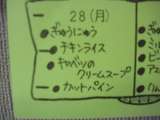 28(月)
ぎゅうにゅう
チキンライス
キャベツの
クリームスープ
カットパイン